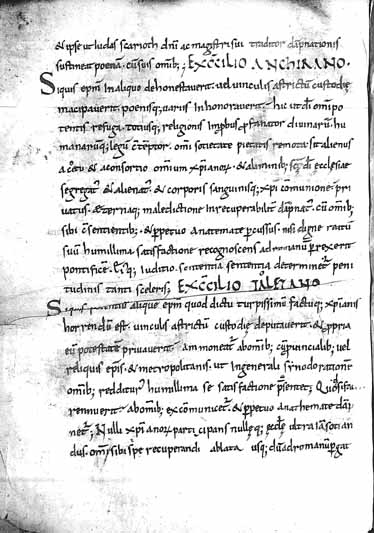 & ipse ut iudas scarioth dnī ac magistri sui traditor dāpnationis
sustineat poenā. cū suis omīb; ; EX CŌCILIO ANCHIRANO.
Siquis epm̄ in aliquo dehonestaverit. vel vinculis astrictū custodię
mancipaverit poenisq; variis inhonoraverit. hic ut dī omīpo
tentis refuga. totiusq; religionis impius profanator divinarū. hu
manarūq; legū cōteptor. omī societate pietatis remota. sit alienus
a cōtu & a consortio omium xp̄ianor. & a liminib; scē dī ecclesiae
segregat' & alienat'. & corporis sanguinisq; xp̄i cōmunione pri
vatus. & ęternaq; maledictione inrecuperabilit' dāpnat'. cū omīb;
sibi cōsentientib; & perpetuo anathemate percussus. nisi digne reatū
suū humillima satisfactione recognoscens ad romanū perrexerit
pontificē. Eiq; iuditio sententia determinet' peni
tudinis tanti sceleris; EX CŌCILIO TALETANO
Siquis aliquē epm̄ quod dictu turpissimū factuq; xp̄ianis
horrendū est. vinculis astrictū custodię deputaverit. & ppria
eū potestate privaverit. ammoneat' ab omīb; cū pvincialib; vel
reliquis epīs. & metropolitanis. ut in generali synodo rationē
omīb; redditur' humillima se satisfactione psentet; Quod si fa
rennuerit. ab omīb; excōmunicet'. & perpetuo anathemate dāp
net'; Nulli xp̄ianor participans nulleq; ecclę ultra iā sotian
dus. omī sibi spe recuperandi ablata usq; dū ad romanū pgat